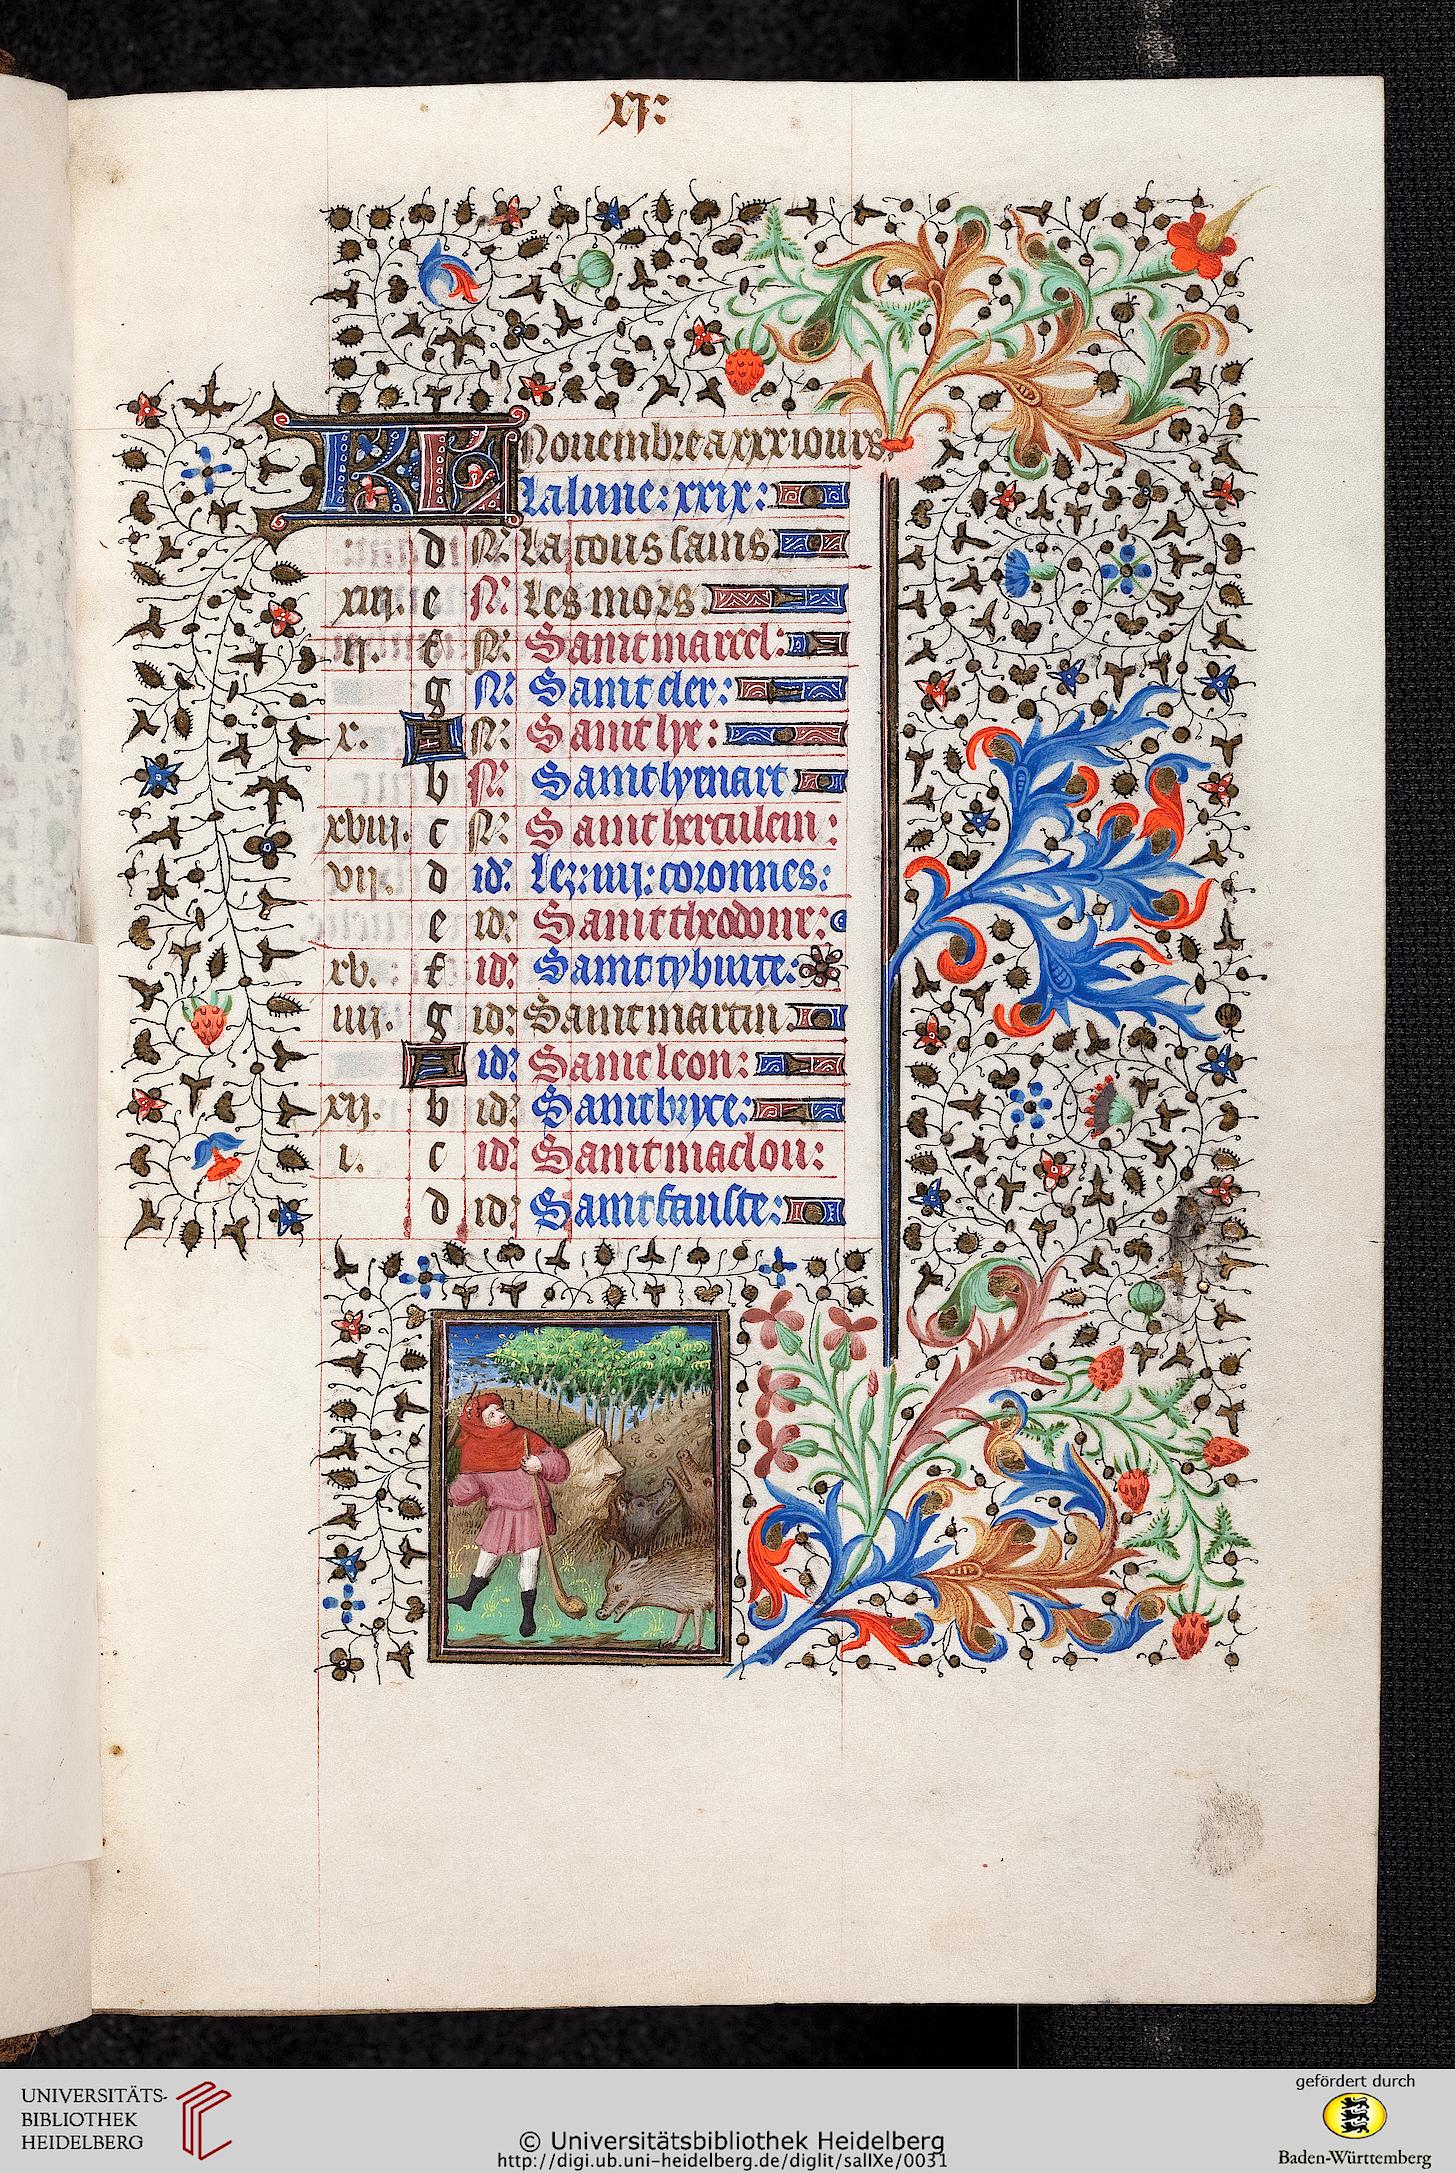 xi:
KL Nouembre a xxx iours.
La lune: xxix:
d N: La tous sains
xiii. e N: Les mors:
ii. f N: Saint marcel:
g N: Saint cler:
x. A N: Saint lye:
b N: Saint lyenart
xviii. c N: Saint herculein:
vii. d id: Lez: iiii: coronnes:
e id: Saint theodore:
xv. f id: Saint tyburce:
iiii. g id: Saint martin.
A id: Saint leon:
xii. b id: Saint bryce:
i. c id: Saint maclou:
d id: Saint fauste:
UNIVERSITÄTS-
BIBLIOTHEK
HEIDELBERG
© Universitätsbibliothek Heidelberg
http://digi.ub.uni-heidelberg.de/diglit/salIXe/0031
gefördert durch
Baden-Württemberg